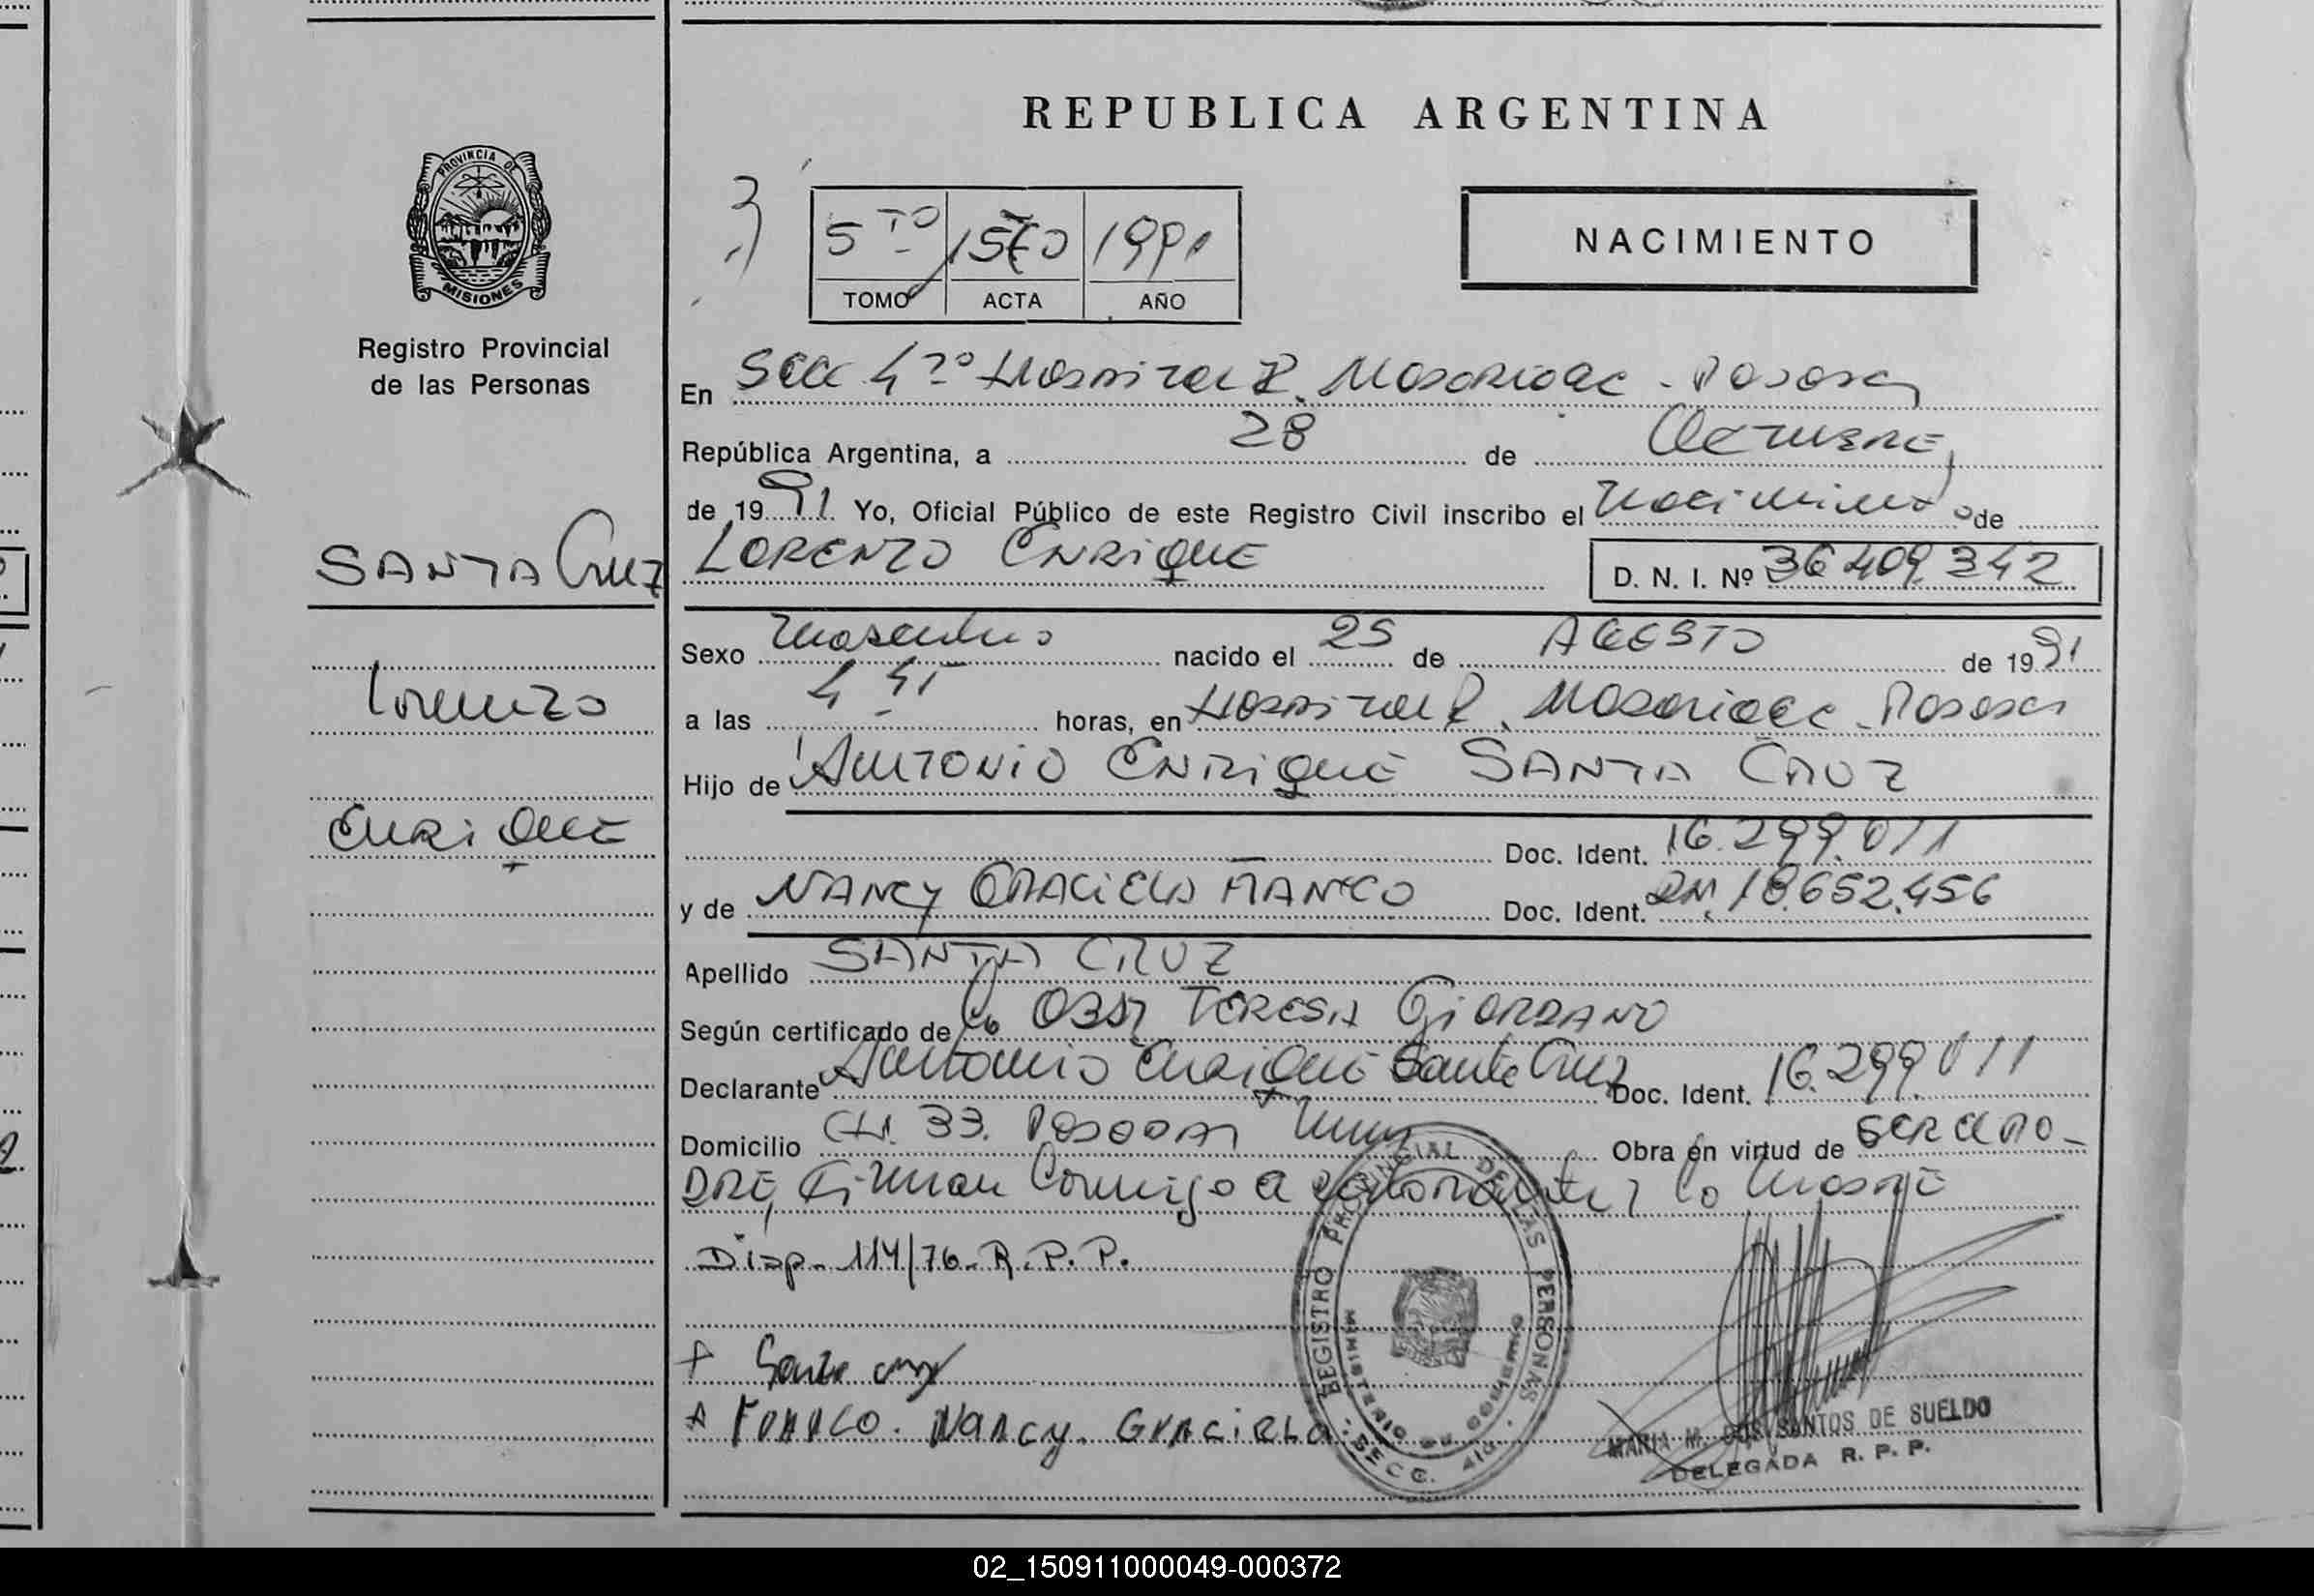 REPUBLICA ARGENTINA
PROVINCIA DE
MISIONES
Registro Provincial
de las Personas
5 TO
1991
TOMO
ACTA
AÑO
NACIMIENTO
En Secc 4ta Hospital R. Madariaga - Posadas
República Argentina, a 28 de Octubre,
de 1991 Yo, Oficial Público de este Registro Civil inscribo el Nacimiento de
SANTA Cruz
Lorenzo
Enrique
LORENZO ENRIQUE
D. N. I. Nº 36409.342
Sexo Masculino nacido el 25 de AGOSTO de 1991
a las 4 horas, en Hospital R. Madariaga - Posadas
Hijo de ANTONIO ENRIQUE SANTA CRUZ
Doc. Ident. 16.299.011
y de NANCY GRACIELA FRANCO Doc. Ident. 18.652.456
Apellido SANTA CRUZ
Según certificado de TERESA GIORDANO
Declarante Antonio Enrique Santa Cruz Doc. Ident. 16.299.011
Domicilio CH. 33. Posadas Obra en virtud de SER EL PA-
DRE, Firman Conmigo el declarante y la Madre
Disp. 114/76. R.P.P.
Santa cruz
FRANCO. Nancy. GRACIELA
REGISTRO PROVINCIAL DE LAS PERSONAS
MINISTERIO DE GOBIERNO
SECC. 4ta.
MARIA M. DOS SANTOS DE SUELDO
DELEGADA R. P. P.
02_150911000049-000372